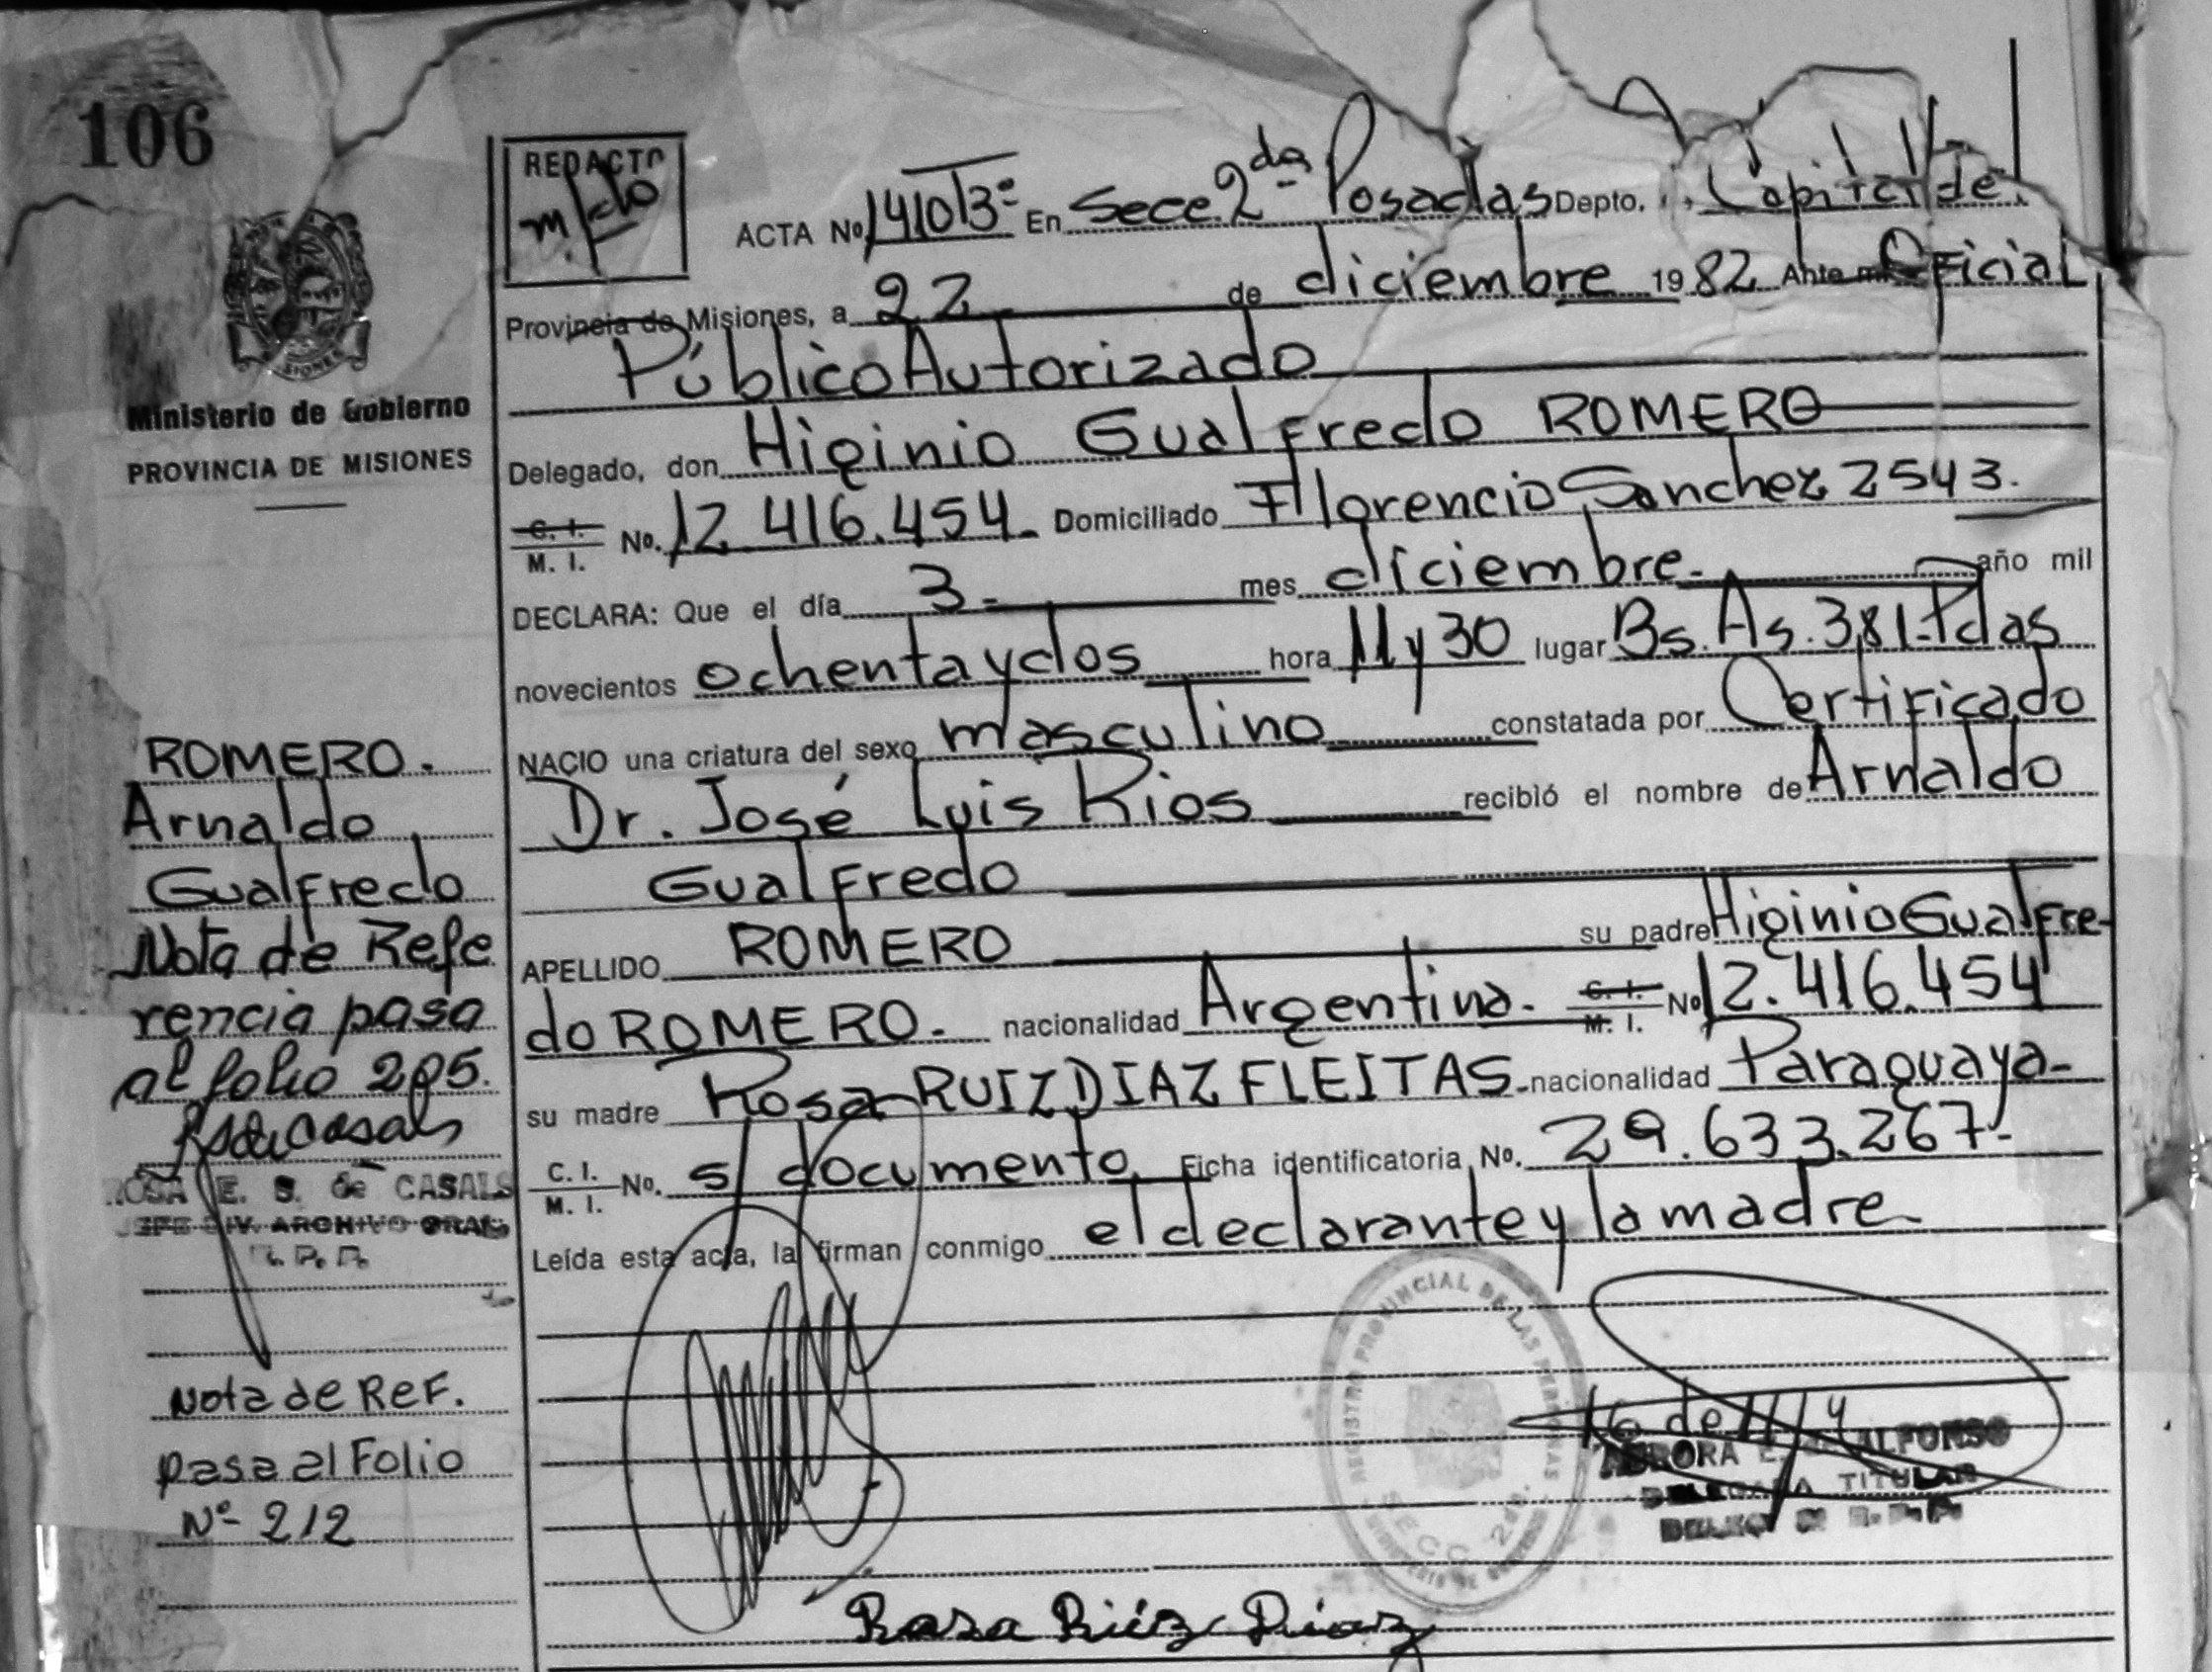 106
Ministerio de Gobierno
PROVINCIA DE MISIONES
REDACTO
ACTA No. En Secc 2da Posadas Depto. Capital de
Provincia de Misiones, a 22 de diciembre 1982 Ante mi Oficial
Público Autorizado
Delegado, don Higinio Gualfredo ROMERO
C. I. / M. I. No. 12.416.454. Domiciliado Florencio Sanchez 2543.
DECLARA: Que el día 3 - mes diciembre. año mil
novecientos ochenta y dos hora 11 y 30 lugar Bs. As. 381 - Pdas
NACIO una criatura del sexo masculino constatada por Certificado
Dr. José Luis Rios recibió el nombre de Arnaldo
Gualfredo
APELLIDO ROMERO su padre Higinio Gualfre-
do ROMERO. nacionalidad Argentina. C. I. / M. I. No 12.416.454
su madre Rosa RUIZ DIAZ FLEITAS nacionalidad Paraguaya-
C. I. / M. I. No. s/ documento. Ficha identificatoria No. 29.633.267-
Leída esta acta, la firman conmigo el declarante y la madre
ROMERO.
Arnaldo
Gualfredo
Nota de Refe
rencia pasa
al folio 205.
ROSA E. S. de CASALS
JEFE DIV. ARCHIVO GRAL
Nota de Ref.
pasa al Folio
Nº 212
REGISTRO PROVINCIAL DE LAS PERSONAS
SECC. 2da.
MINISTERIO DE GOBIERNO
AURORA ALFONSO
DELEGADA TITULAR
Rosa Ruiz Diaz